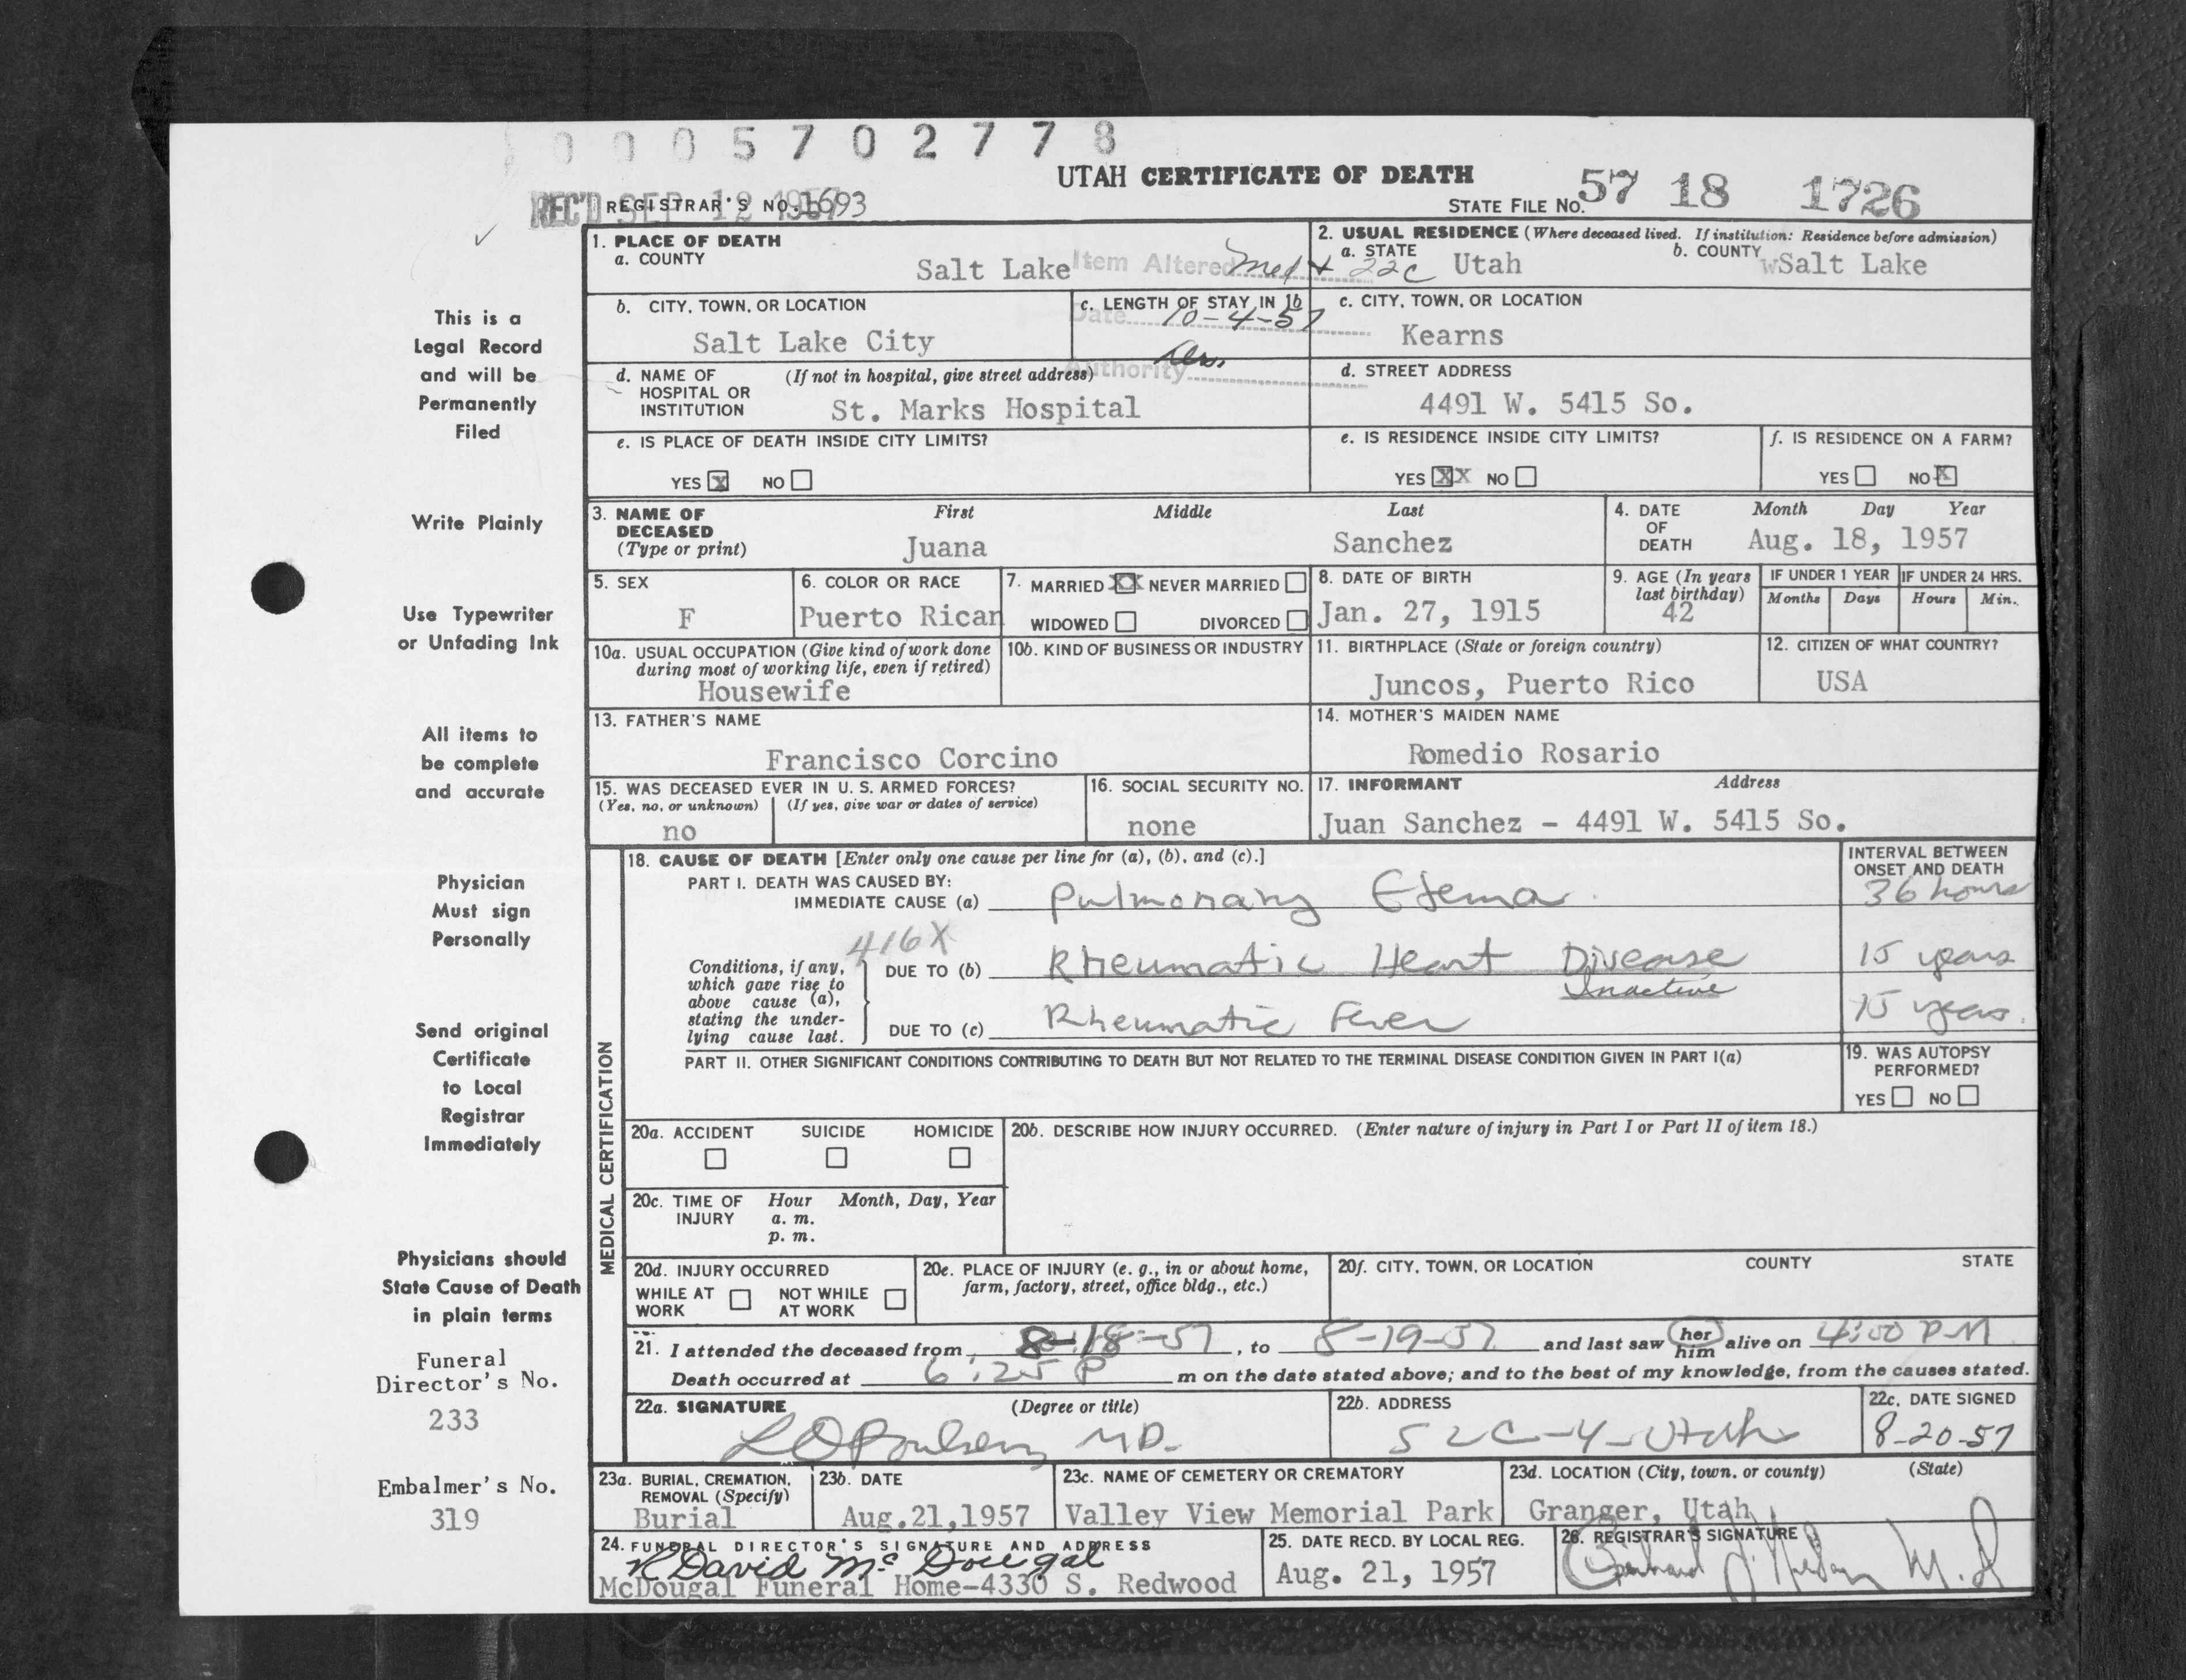 0005702778
UTAH CERTIFICATE OF DEATH
REC'D SEP 12 1957 REGISTRAR'S NO. 1693
STATE FILE No. 57 18 1726
This is a
Legal Record
and will be
Permanently
Filed
Write Plainly
Use Typewriter
or Unfading Ink
All items to
be complete
and accurate
Physician
Must sign
Personally
Send original
Certificate
to Local
Registrar
Immediately
Physicians should
State Cause of Death
in plain terms
Funeral
Director's No.
233
Embalmer's No.
319
1. PLACE OF DEATH
a. COUNTY
Salt Lake
Item Altered Med + 22c
Date 10-4-57
Authority
2. USUAL RESIDENCE (Where deceased lived. If institution: Residence before admission)
a. STATE Utah
b. COUNTY Salt Lake
b. CITY, TOWN, OR LOCATION
Salt Lake City
c. LENGTH OF STAY IN 1b
c. CITY, TOWN, OR LOCATION
Kearns
d. NAME OF HOSPITAL OR INSTITUTION (If not in hospital, give street address)
St. Marks Hospital
d. STREET ADDRESS
4491 W. 5415 So.
e. IS PLACE OF DEATH INSIDE CITY LIMITS?
YES X NO
e. IS RESIDENCE INSIDE CITY LIMITS?
YES XX NO
f. IS RESIDENCE ON A FARM?
YES NO X
3. NAME OF DECEASED (Type or print)
First Middle Last
Juana Sanchez
4. DATE OF DEATH Month Day Year
Aug. 18, 1957
5. SEX
F
6. COLOR OR RACE
Puerto Rican
7. MARRIED XX NEVER MARRIED
WIDOWED DIVORCED
8. DATE OF BIRTH
Jan. 27, 1915
9. AGE (In years last birthday)
42
IF UNDER 1 YEAR
Months Days
IF UNDER 24 HRS.
Hours Min.
10a. USUAL OCCUPATION (Give kind of work done during most of working life, even if retired)
Housewife
10b. KIND OF BUSINESS OR INDUSTRY
11. BIRTHPLACE (State or foreign country)
Juncos, Puerto Rico
12. CITIZEN OF WHAT COUNTRY?
USA
13. FATHER'S NAME
Francisco Corcino
14. MOTHER'S MAIDEN NAME
Romedio Rosario
15. WAS DECEASED EVER IN U. S. ARMED FORCES?
(Yes, no, or unknown) (If yes, give war or dates of service)
no
16. SOCIAL SECURITY NO.
none
17. INFORMANT Address
Juan Sanchez - 4491 W. 5415 So.
MEDICAL CERTIFICATION
18. CAUSE OF DEATH [Enter only one cause per line for (a), (b), and (c).]
INTERVAL BETWEEN ONSET AND DEATH
PART I. DEATH WAS CAUSED BY:
IMMEDIATE CAUSE (a) Pulmonary Edema 36 hours
416X
Conditions, if any, which gave rise to above cause (a), stating the underlying cause last.
DUE TO (b) Rheumatic Heart Disease 15 years
Inactive
DUE TO (c) Rheumatic Fever 15 years.
PART II. OTHER SIGNIFICANT CONDITIONS CONTRIBUTING TO DEATH BUT NOT RELATED TO THE TERMINAL DISEASE CONDITION GIVEN IN PART I(a)
19. WAS AUTOPSY PERFORMED?
YES NO
20a. ACCIDENT SUICIDE HOMICIDE
20b. DESCRIBE HOW INJURY OCCURRED. (Enter nature of injury in Part I or Part II of item 18.)
20c. TIME OF INJURY Hour Month, Day, Year
a. m.
p. m.
20d. INJURY OCCURRED
WHILE AT WORK NOT WHILE AT WORK
20e. PLACE OF INJURY (e. g., in or about home, farm, factory, street, office bldg., etc.)
20f. CITY, TOWN, OR LOCATION COUNTY STATE
21. I attended the deceased from 8-18-57, to 8-19-57 and last saw her him alive on 4:00 PM
Death occurred at 6:25 P m on the date stated above; and to the best of my knowledge, from the causes stated.
22a. SIGNATURE (Degree or title)
L O Poulsen MD.
22b. ADDRESS
SLC-4-Utah
22c. DATE SIGNED
8-20-57
23a. BURIAL, CREMATION, REMOVAL (Specify)
Burial
23b. DATE
Aug.21,1957
23c. NAME OF CEMETERY OR CREMATORY
Valley View Memorial Park
23d. LOCATION (City, town, or county) (State)
Granger, Utah
24. FUNERAL DIRECTOR'S SIGNATURE AND ADDRESS
R David McDougal
McDougal Funeral Home-4330 S. Redwood
25. DATE RECD. BY LOCAL REG.
Aug. 21, 1957
26. REGISTRAR'S SIGNATURE